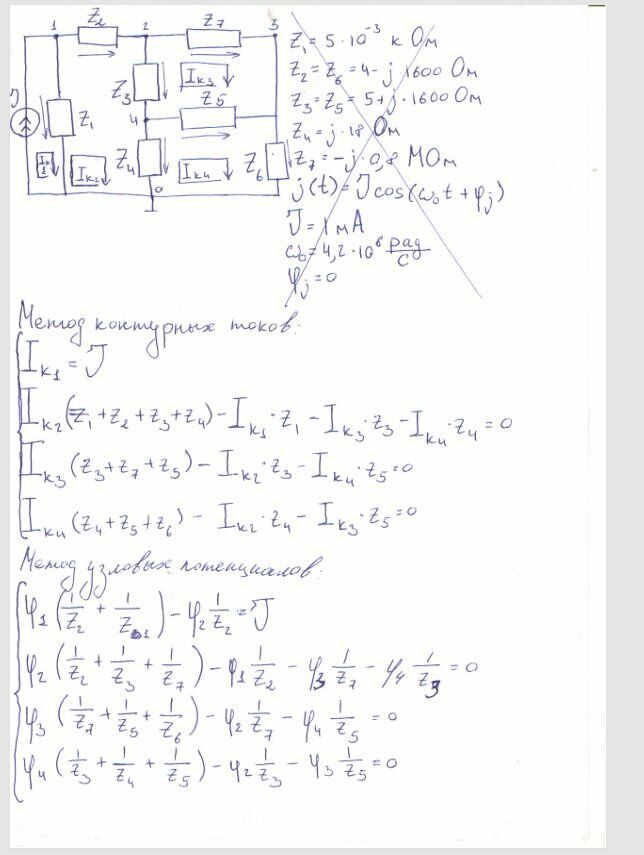 1 Z₂ 2 Z₇ 3
J Z₁ Z₃ Iк₃ Z₅
4 Z₄ Iк₂ Iк₄ Z₆
0
Z₁ = 5 · 10⁻³ кОм
Z₂ = Z₆ = 4 - j 1600 Ом
Z₃ = Z₅ = 5 + j · 1600 Ом
Z₄ = j · 18 Ом
Z₇ = -j · 0,8 МОм
j(t) = J cos(ω₀t + φⱼ)
J = 1 мА
ω₀ = 4,2 · 10⁶ рад/с
φⱼ = 0
Метод контурных токов:
Iк₁ = J
Iк₂ (Z₁ + Z₂ + Z₃ + Z₄) - Iк₁ · Z₁ - Iк₃ · Z₃ - Iк₄ · Z₄ = 0
Iк₃ (Z₃ + Z₇ + Z₅) - Iк₂ · Z₃ - Iк₄ · Z₅ = 0
Iк₄ (Z₄ + Z₅ + Z₆) - Iк₂ · Z₄ - Iк₃ · Z₅ = 0
Метод узловых потенциалов:
φ₁ (1/Z₂ + 1/Z₁) - φ₂ 1/Z₂ = J
φ₂ (1/Z₂ + 1/Z₃ + 1/Z₇) - φ₁ 1/Z₂ - φ₃ 1/Z₇ - φ₄ 1/Z₃ = 0
φ₃ (1/Z₇ + 1/Z₅ + 1/Z₆) - φ₂ 1/Z₇ - φ₄ 1/Z₅ = 0
φ₄ (1/Z₃ + 1/Z₄ + 1/Z₅) - φ₂ 1/Z₃ - φ₃ 1/Z₅ = 0